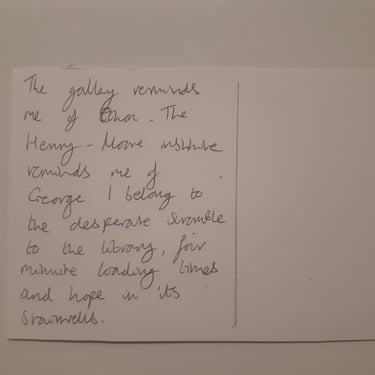 The galley reminds
me of Ethan. The
Henry-Moore institute
reminds me of
George. I belong to
the desperate scramble
to the library, four
minute loading times
and hope in its
stairwells.